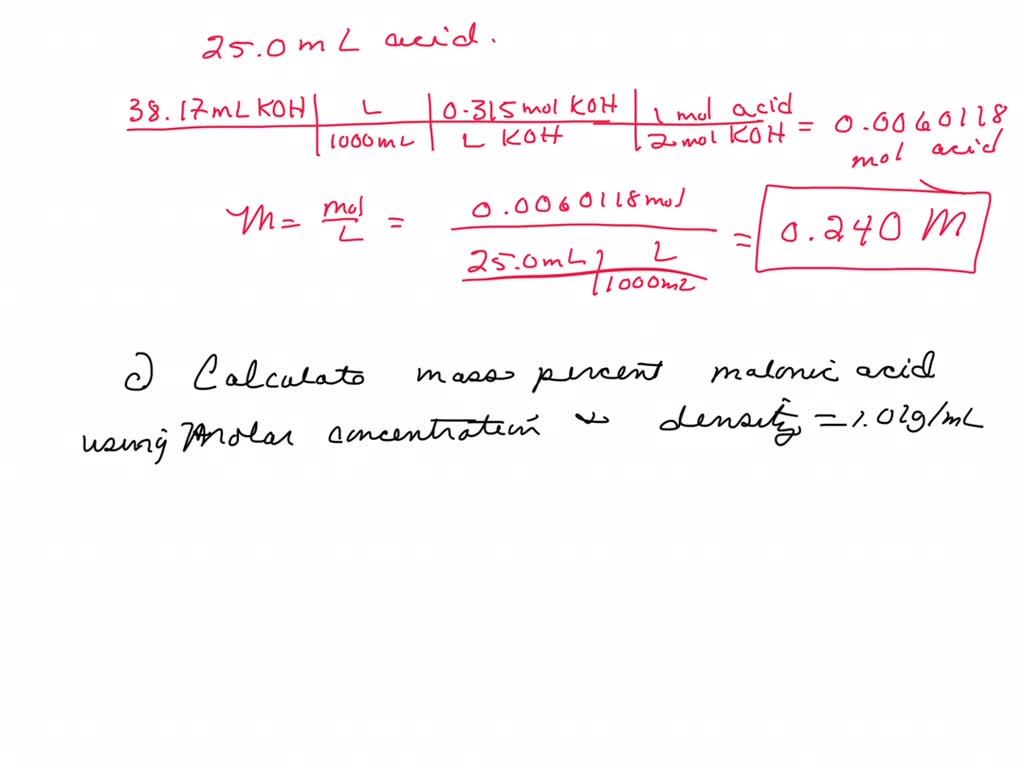 25.0 mL acid.
38.17mL KOH | L | 0.315 mol KOH | 1 mol acid
1000mL | L KOH | 2 mol KOH = 0.0060118
mol acid
M = mol/L = 0.0060118mol / 25.0mL | L / 1000mL = 0.240 M
c) Calculate mass percent malonic acid
using Molar concentration density = 1.02g/mL